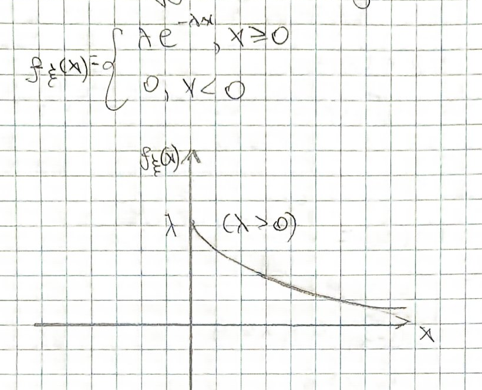 f_ξ(x) = { λe^{-λx}, x ≥ 0
0, x < 0
f_ξ(x)
λ (λ > 0)
x